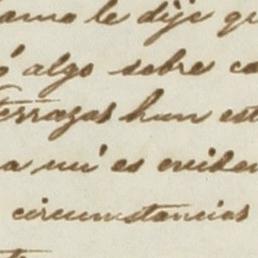 amo le dije qu
ó algo sobre co
Terrazas han est
a mi es eviden
circunstancias